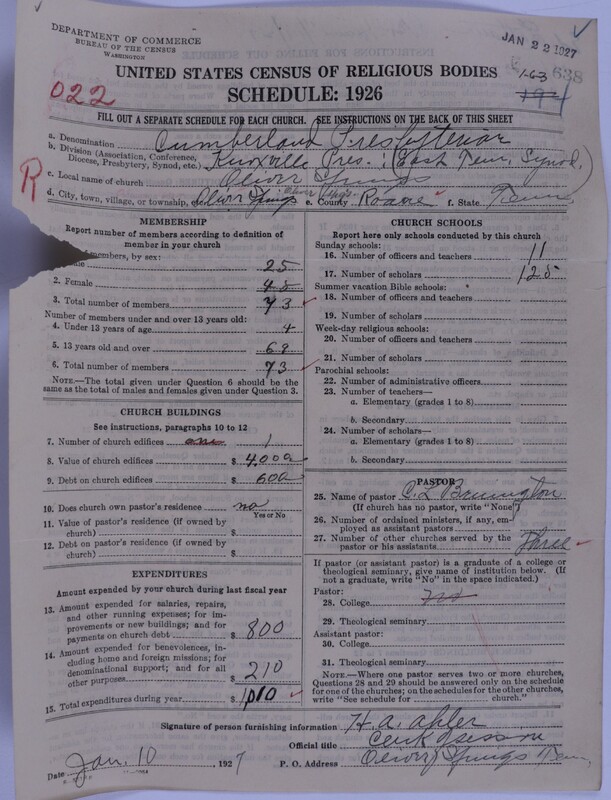 DEPARTMENT OF COMMERCE
BUREAU OF THE CENSUS
WASHINGTON
JAN 22 1927
UNITED STATES CENSUS OF RELIGIOUS BODIES
SCHEDULE: 1926
022
1-63
194
638
FILL OUT A SEPARATE SCHEDULE FOR EACH CHURCH. SEE INSTRUCTIONS ON THE BACK OF THIS SHEET
a. Denomination Cumberland Presbyterian
b. Division (Association, Conference, Diocese, Presbytery, Synod, etc.) Knoxville Pres. : (East Tenn. Synod)
c. Local name of church Oliver Springs
R
d. City, town, village, or township, etc. Oliver Springs e. County Roane f. State Tenn
MEMBERSHIP
Report number of members according to definition of
member in your church
members, by sex:
25
2. Female 48
3. Total number of members 73
Number of members under and over 13 years old:
4. Under 13 years of age 4
5. 13 years old and over 69
6. Total number of members 73
NOTE.—The total given under Question 6 should be
the same as the total of males and females given under Question 3.
CHURCH BUILDINGS
See instructions, paragraphs 10 to 12
7. Number of church edifices one 1
8. Value of church edifices $ 4000
9. Debt on church edifices $ 600
10. Does church own pastor's residence no
Yes or No
11. Value of pastor's residence (if owned by
church) $
12. Debt on pastor's residence (if owned by
church) $
EXPENDITURES
Amount expended by your church during last fiscal year
13. Amount expended for salaries, repairs,
and other running expenses; for im-
provements or new buildings; and for
payments on church debt $ 800
14. Amount expended for benevolences, in-
cluding home and foreign missions; for
denominational support; and for all
other purposes $ 210
15. Total expenditures during year $ 1010
CHURCH SCHOOLS
Report here only schools conducted by this church
Sunday schools:
16. Number of officers and teachers 11
17. Number of scholars 125
Summer vacation Bible schools:
18. Number of officers and teachers
19. Number of scholars
Week-day religious schools:
20. Number of officers and teachers
21. Number of scholars
Parochial schools:
22. Number of administrative officers
23. Number of teachers—
a. Elementary (grades 1 to 8)
b. Secondary
24. Number of scholars—
a. Elementary (grades 1 to 8)
b. Secondary
PASTOR
25. Name of pastor C. L. Brunington
(If church has no pastor, write "None")
26. Number of ordained ministers, if any, em-
ployed as assistant pastors
27. Number of other churches served by the
pastor or his assistants Three
If pastor (or assistant pastor) is a graduate of a college or
theological seminary, give name of institution below. (If
not a graduate, write "No" in the space indicated.)
Pastor:
28. College no
29. Theological seminary
Assistant pastor:
30. College
31. Theological seminary
NOTE.—Where one pastor serves two or more churches,
Questions 28 and 29 should be answered only on the schedule
for one of the churches; on the schedules for the other churches,
write "See schedule for church."
Signature of person furnishing information H. A. Abler
Official title Clerk Session
Date Jan. 10 1927 P. O. Address Oliver Springs Tenn